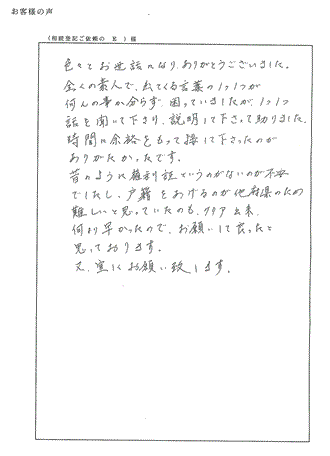 お客様の声
(相続登記ご依頼の E ) 様
色々とお世話になり、ありがとうございました。
全くの素人で、出てくる言葉の1つ1つが
何んの事か分らず、困っていましたが、1つ1つ
話を聞いて下さり、説明して下さって助りました。
時間に余裕をもって接して下さったのが
ありがたかったです。
昔のように権利証というのがないのが不安
でしたし、戸籍をあげるのが他府県のため
難しいと思っていたのも、クリア出来、
何より早かったので、お願いして良ったと
思っております。
又、宜しくお願い致します。